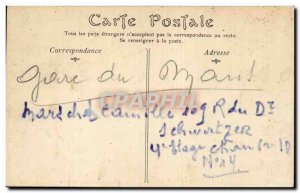 Carte Postale
Tous les pays étrangers n'acceptent pas la correspondance au recto.
Se renseigner à la poste.
Correspondance
Adresse
Gare du Mans
Camille 109 R du Dr
Schweitzer
4e étage chambre
N° 14